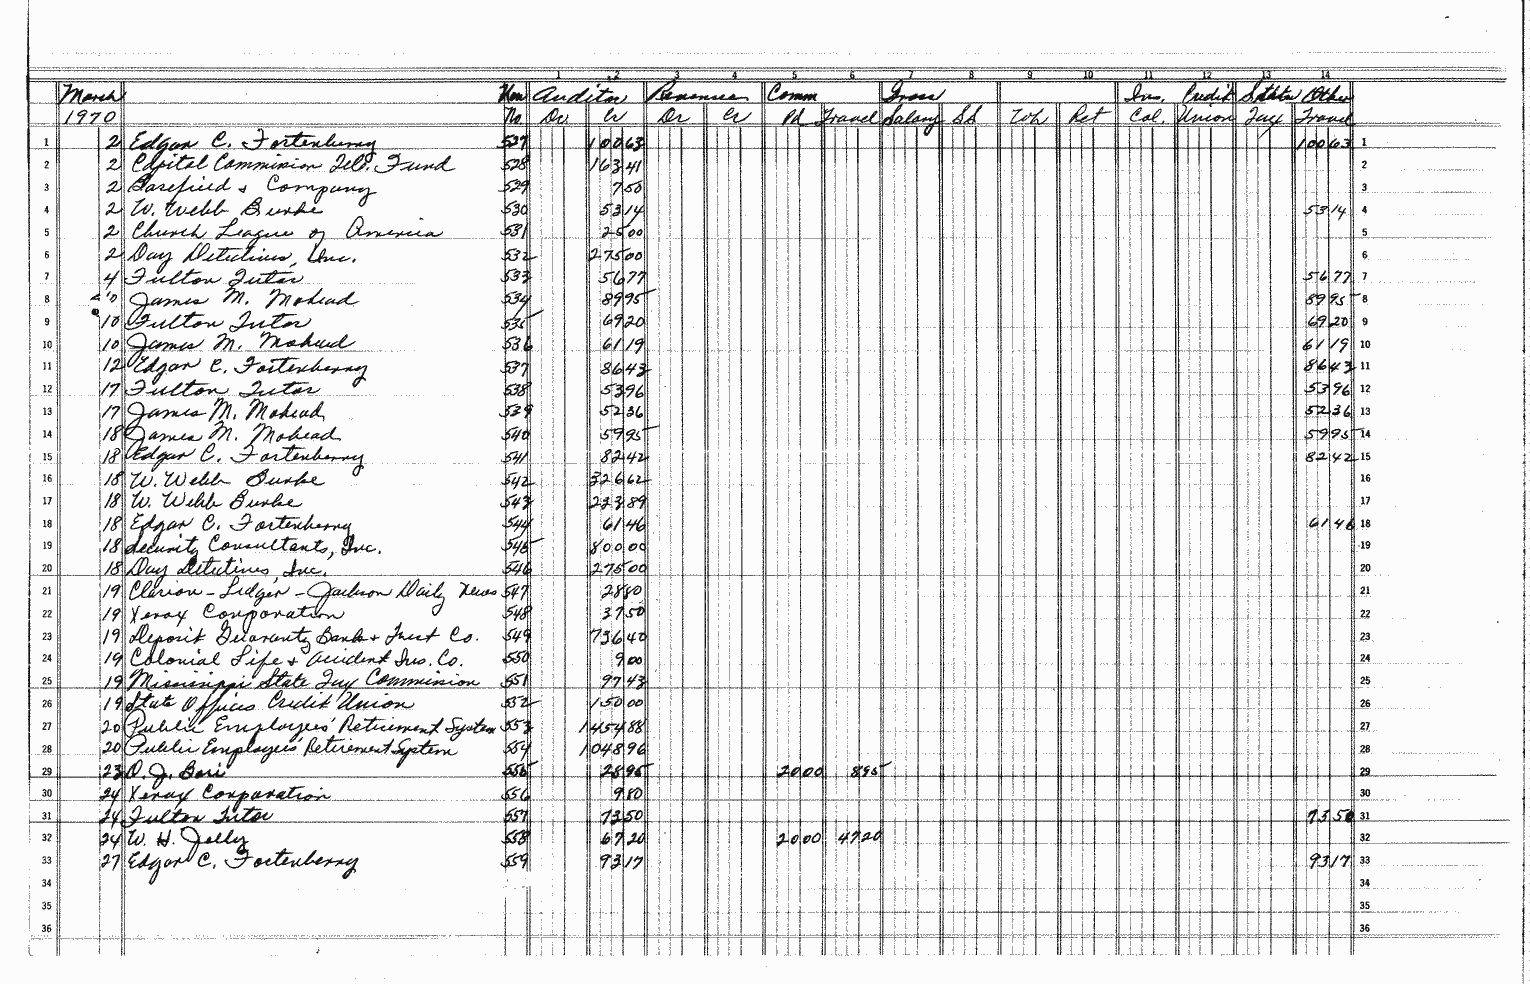 1 2 3 4 5 6 7 8 9 10 11 12 13 14
March Auditor Revenues Comm Gross Ins. Credit State Other
1970 No. Dr Cr Dr Cr Pd Travel Salary SS Wh Ret Col. Union Tax Travel
1 2 Edgar C. Fortenberry 527 100 63 100 63 1
2 2 Capital Commission Tel. Fund 528 163 41 2
3 2 Barefield & Company 529 7 50 3
4 2 W. Webb Burke 530 53 14 53 14 4
5 2 Church League of America 531 25 00 5
6 2 Day Detectives, Inc. 532 275 00 6
7 4 Fulton Tutor 533 56 77 56 77 7
8 10 James M. Mohead 534 89 95 89 95 8
9 10 Fulton Tutor 535 69 20 69 20 9
10 10 James M. Mohead 536 61 19 61 19 10
11 12 Edgar C. Fortenberry 537 86 43 86 43 11
12 17 Fulton Tutor 538 53 96 53 96 12
13 17 James M. Mohead 539 52 36 52 36 13
14 18 James M. Mohead 540 59 95 59 95 14
15 18 Edgar C. Fortenberry 541 82 42 82 42 15
16 18 W. Webb Burke 542 326 62 16
17 18 W. Webb Burke 543 223 89 17
18 18 Edgar C. Fortenberry 544 61 46 61 46 18
19 18 Security Consultants, Inc. 545 800 00 19
20 18 Day Detectives, Inc. 546 275 00 20
21 19 Clarion-Ledger - Jackson Daily News 547 28 80 21
22 19 Xerox Corporation 548 37 50 22
23 19 Deposit Guaranty Bank & Trust Co. 549 736 40 23
24 19 Colonial Life & Accident Ins. Co. 550 9 00 24
25 19 Mississippi State Tax Commission 551 97 43 25
26 19 State Offices Credit Union 552 150 00 26
27 20 Public Employees' Retirement System 553 1454 88 27
28 20 Public Employees' Retirement System 554 1048 96 28
29 23 O. J. Bori 555 28 95 20 00 8 95 29
30 24 Xerox Corporation 556 9 80 30
31 24 Fulton Tutor 557 73 50 73 50 31
32 24 W. H. Jolly 558 67 20 20 00 47 20 32
33 27 Edgar C. Fortenberry 559 93 17 93 17 33
34 34
35 35
36 36